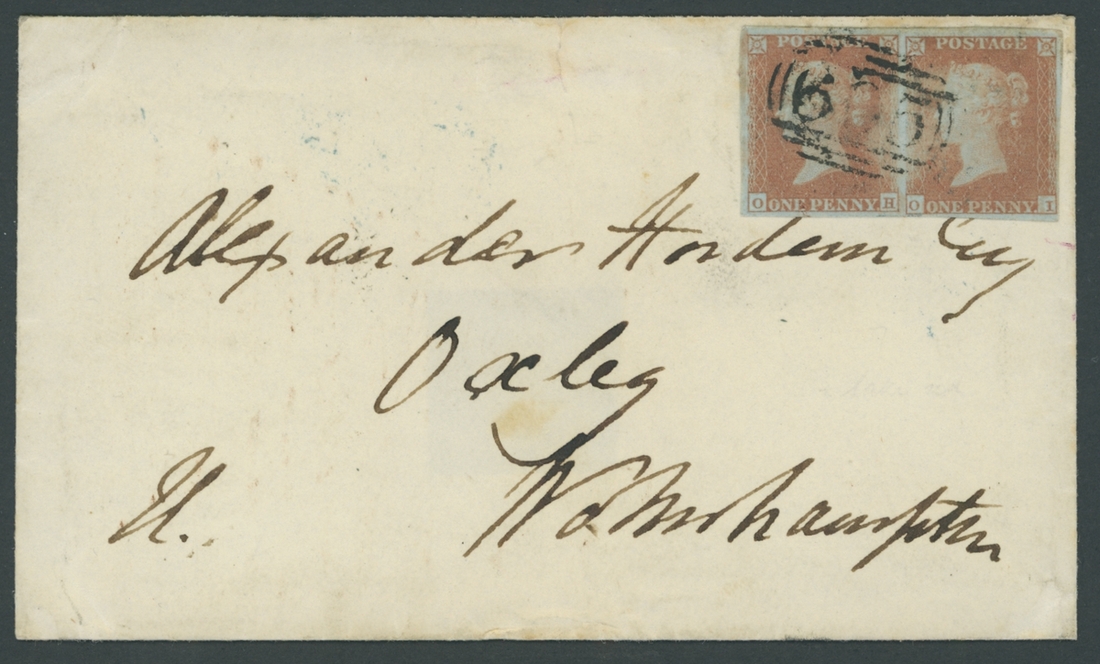 POSTAGE POSTAGE
ONE PENNY ONE PENNY
O H O I
Alexander Hordern Esq
Oxley
Wolverhampton